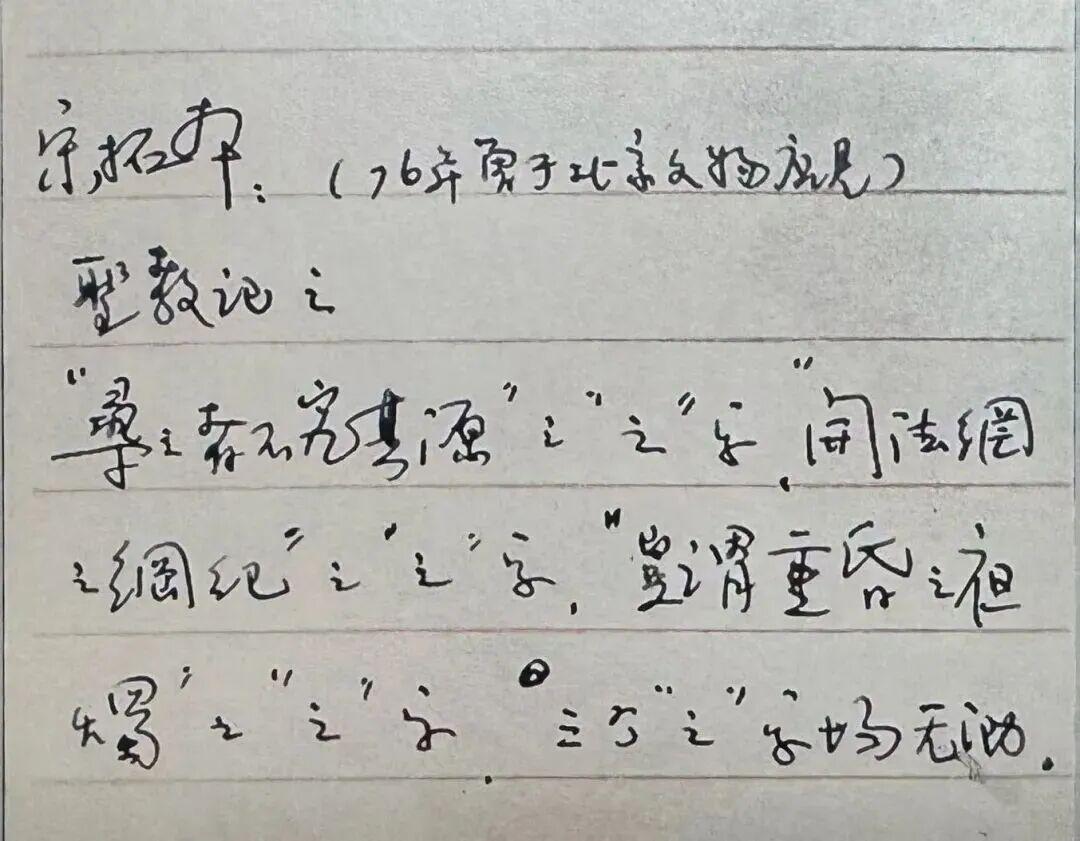 宋拓本:(76年夏于北京文物店见)
聖教记之
"尋之者不究其源"之"之"字,"開法網
之綱纪"之"之"字,"豈谓重昏之夜
燭"之"之"字.三个"之"字均无泐.